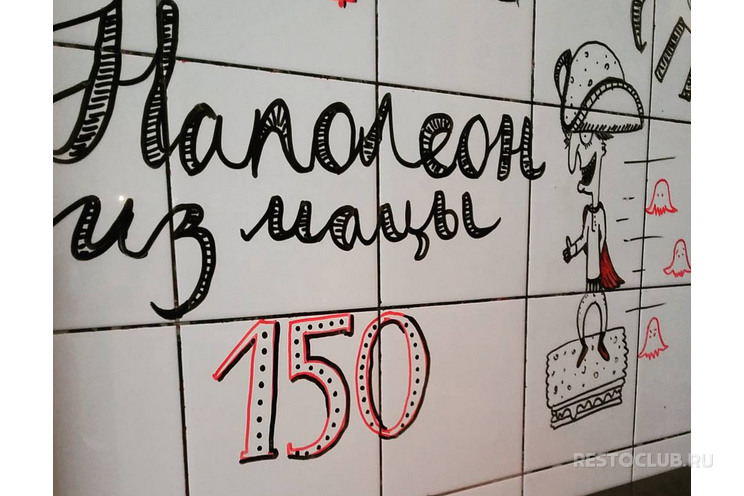 Наполеон
из мацы
150
RESTOCLUB.RU